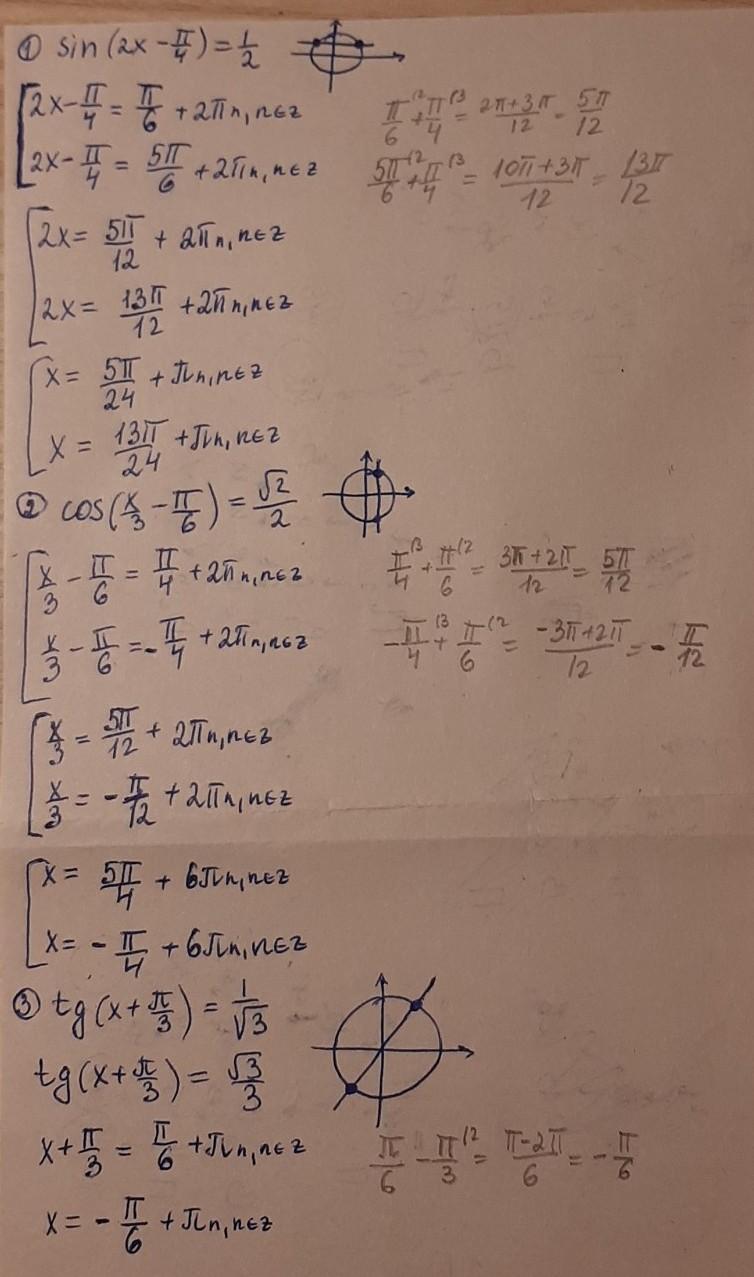 ① sin(2x - π/4) = 1/2
[2x - π/4 = π/6 + 2πn, n∈z
π/6⁽² + π/4⁽³ = 2π+3π/12 = 5π/12
2x - π/4 = 5π/6 + 2πn, n∈z
5π/6⁽² + π/4⁽³ = 10π+3π/12 = 13π/12
[2x = 5π/12 + 2πn, n∈z
2x = 13π/12 + 2πn, n∈z
[x = 5π/24 + πn, n∈z
x = 13π/24 + πn, n∈z
② cos(x/3 - π/6) = √2/2
[x/3 - π/6 = π/4 + 2πn, n∈z
π/4⁽³ + π/6⁽² = 3π+2π/12 = 5π/12
x/3 - π/6 = -π/4 + 2πn, n∈z
-π/4⁽³ + π/6⁽² = -3π+2π/12 = -π/12
[x/3 = 5π/12 + 2πn, n∈z
x/3 = -π/12 + 2πn, n∈z
[x = 5π/4 + 6πn, n∈z
x = -π/4 + 6πn, n∈z
③ tg(x + π/3) = 1/√3
tg(x + π/3) = √3/3
x + π/3 = π/6 + πn, n∈z
π/6 - π/3⁽² = π-2π/6 = -π/6
x = -π/6 + πn, n∈z